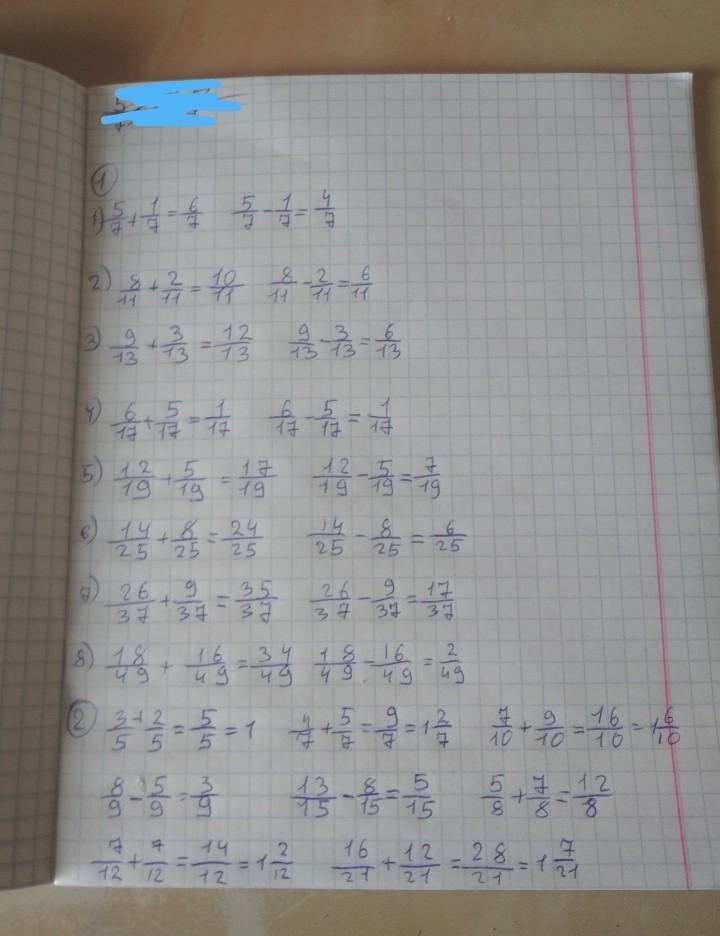 ①
1) 5/7 + 1/7 = 6/7 5/7 - 1/7 = 4/7
2) 8/11 + 2/11 = 10/11 8/11 - 2/11 = 6/11
3) 9/13 + 3/13 = 12/13 9/13 - 3/13 = 6/13
4) 6/17 + 5/17 = 1/17 6/17 - 5/17 = 1/17
5) 12/19 + 5/19 = 17/19 12/19 - 5/19 = 7/19
6) 14/25 + 8/25 = 24/25 14/25 - 8/25 = 6/25
7) 26/37 + 9/37 = 35/37 26/37 - 9/37 = 17/37
8) 18/49 + 16/49 = 34/49 18/49 - 16/49 = 2/49
② 3/5 + 2/5 = 5/5 = 1 4/7 + 5/7 = 9/7 = 1 2/7 7/10 + 9/10 = 16/10 = 1 6/10
8/9 - 5/9 = 3/9 13/15 - 8/15 = 5/15 5/8 + 7/8 = 12/8
7/12 + 7/12 = 14/12 = 1 2/12 16/21 + 12/21 = 28/21 = 1 7/21